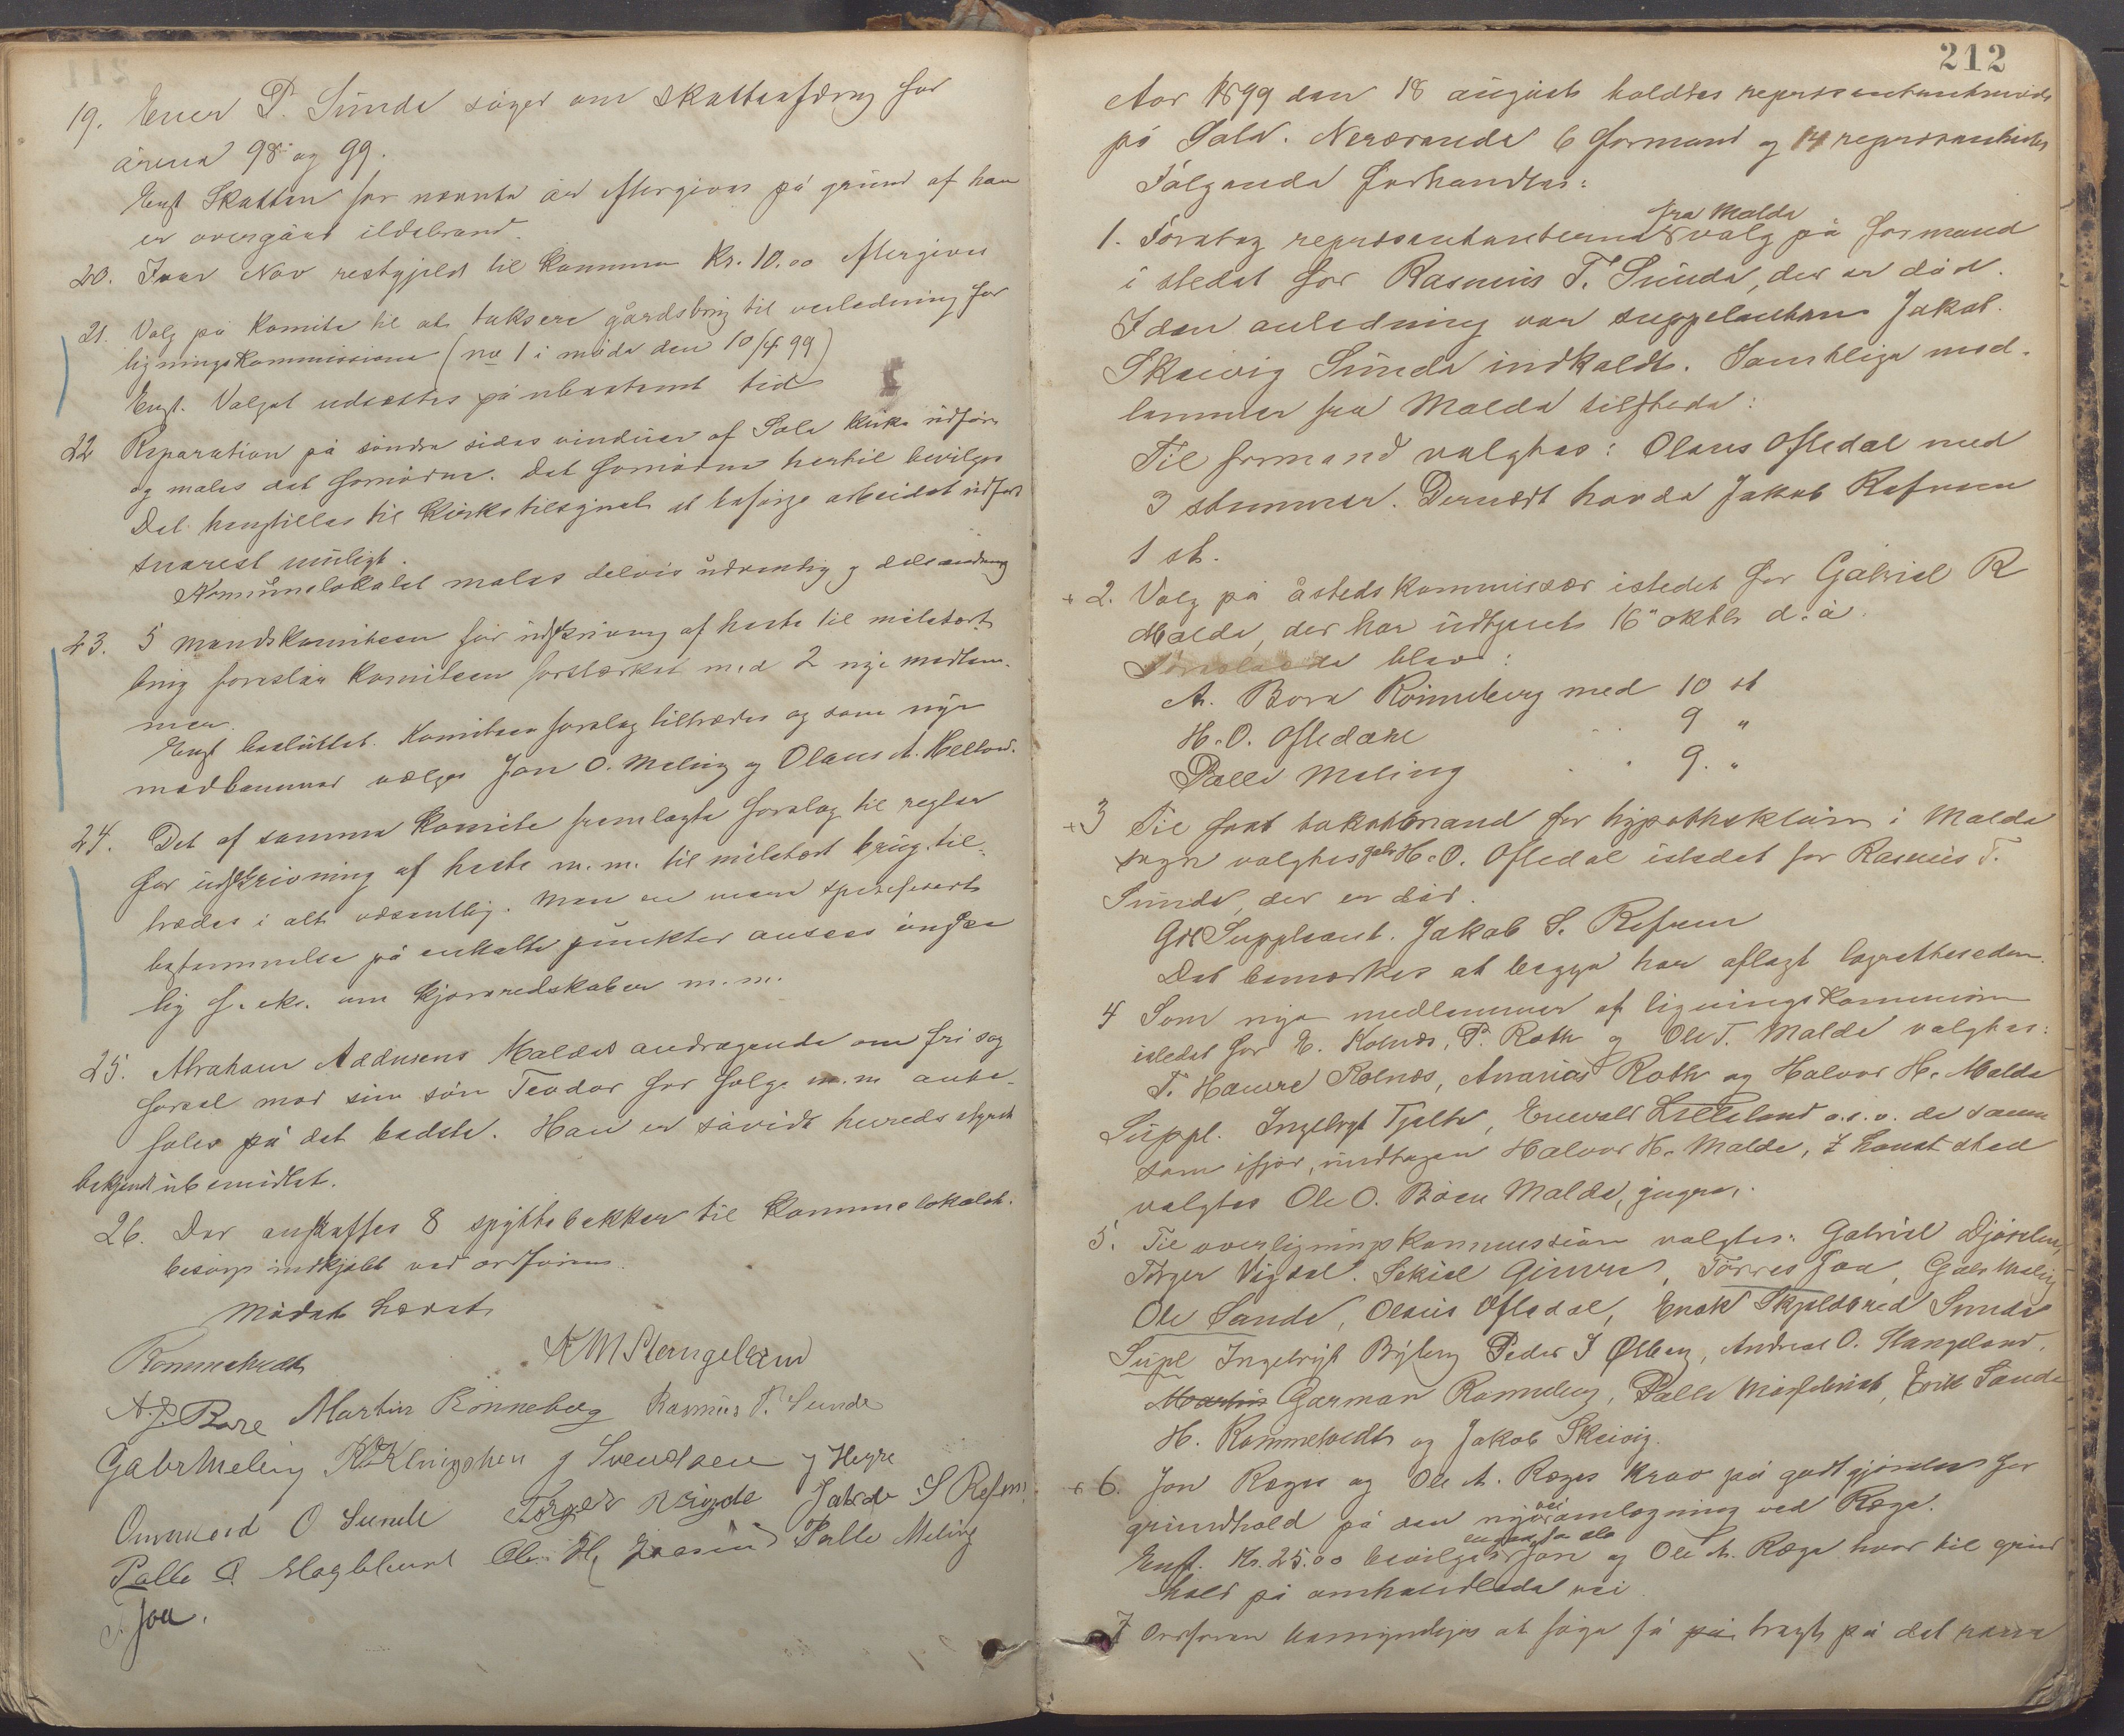 19. Ener P. Sunde söger om Skatteafdrag for
årene 98 og 99.
Enst Skatten for nævnte år eftergives på grund af han
er overgået ildebrand.
20. Ivar Nov restgjeld til kommunen kr. 10.00 eftergives
21. Valg på komite til at taksere gårdsbrug til veiledning for
ligningskommissionen (no 1 i møde den 10/4 99)
Enst. Valget udsættes på ubestemt tid
22 Reparation på söndre sides vinduer af Sola kirke udføres
og males det fornødne. Det fornødne hertil bevilges
Det henstilles til Kirketilsynet at besørge arbeidet udført
snarest muligt.
Komunelokalet males delvis udvendig og dels indvendig
23. 5 mandskomiteen for udskrivning af heste til militært
brug foreslår komiteen forstærket med 2 nye medlem-
mer.
Enst besluttet. Komiteens forslag tiltrædes og som nye
medlemmer vælges Jon O. Meling og Olaus A. Hellvi.
24. Det af samme Komite fremlagte forslag til regler
for udskrivning af heste m.m. til militært brug til-
trædes i alt væsentlig. Men en mere spesifisert
bestemmelse på enkelte punkter ansees önske
lig f. eks. om kjøreredskaber m.m.
25. Abraham Aadnesens Maldes andragende om fri sag
førsel mod sin sön Teodor for følge m.m anbe-
fales på det bedste. Han er såvidt herredsstyret
bekjendt ubemidlet.
26. Der anskaffes 8 spyttebakker til Kommunelokalet.
besørges indkjøbt ved ordføren.
Mödet hævet
Rommetvedt A M Stangeland
A. J. Bore Martin Rönneberg Rasmus P. Sunde
Gabr Meling J Svendsen J Hegre
O Sunde Torger Vigdel Jakob S Refsnes
Palle Ole H. Palle Meling
T. Joa.
212
Aar 1899 den 18 august holdtes repræsentantmöde
på Sola. Nerværende 6 formænd og 14 repræsentanter
Fölgende forhandles:
fra Malde
1. Foretag repræsentanterne valg på formand
i stedet for Rasmus T. Sunde, der er död.
I den anledning var suppelanten Jakob
Skeivig Sunde indkaldt. Samtlige med-
lemmer fra Malde tilstede:
Til formand valgtes: Olaus Oftedal med
3 stemmer. Dernæst havde Jakob Refsnes
1 st.
+ 2. Valg på åstedskommissær istedet for Gabriel R
Malde, der har udtjent 16 oktb d. å.
Foreslåede blev:
A. Bore Rönneberg med 10 st
H. O. Oftedal " 9 "
Palle Meling " 9. "
+3 Til fast takstmand for hypothekslån i Malde
sogn valgtes H. O. Oftedal istedet for Rasmus T.
Sunde, der er död.
Suppleant. Jakob S. Refsnes
Det bemærkes at begge har aflagt lagretteseden.
4 Som nye medlemmer af ligningskommission
istedet for E. Kolnes, P. Roth og Ole T. Malde valgtes:
T. Haavre Kolnes, Ananias Roth og Halvor H. Malde
Suppl. Ingebrgt Tjelte, Enevald Lilleland o.s.v. de samme
som ifjor, undtagen Halvor H. Malde, I hans sted
valgtes Ole O. Böen Malde, yngre.
5. Til overligningskommission valgtes: Gabriel
Torger Vigdel. Sekiel Grunnes, Törres Joa, Gabr Meling
Ole Sande, Olaus Oftedal, Enok Skjeldbred Sunde
Supl Ingebrigt Byberg Peder I Ölberg, Andreas O. Stangeland.
Martin Garman Ronneberg, Palle, Erik Sande
H. Rommetvedt og Jakob Skeivig.
+ 6. Jon Ræges og Ole A. Ræges krav på godtgjørelse for
grundhold på den nye veiomlægning ved Ræge.
Enst. Kr. 25.00 bevilges Jon og Ole A. Ræge hver til grus
hold på omhandlede vei
7 Ordføren bemyndiges at søge få på bragt på det rene